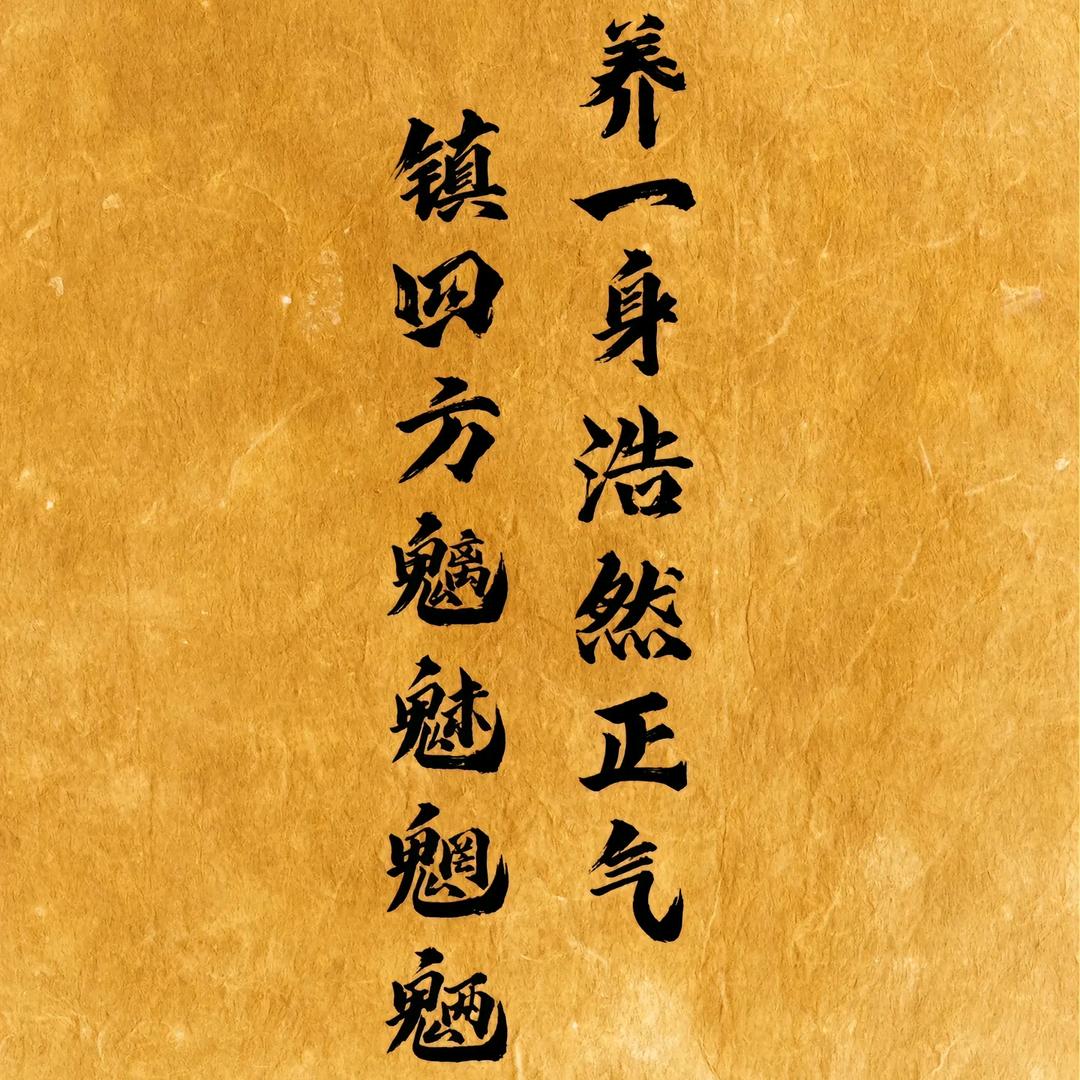 养一身浩然正气
镇四方魑魅魍魉